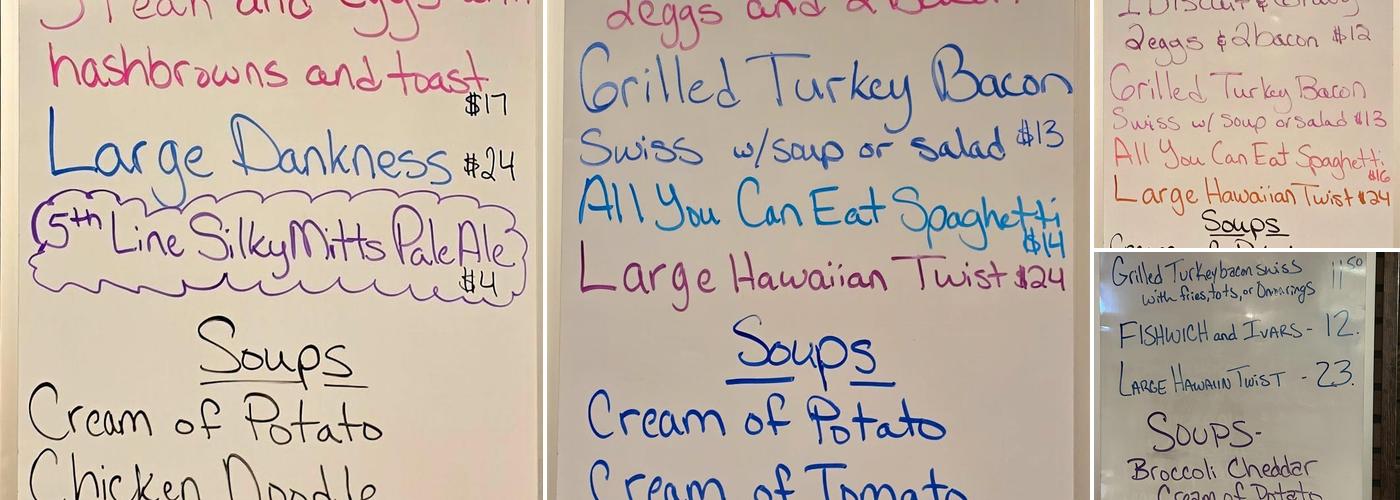 and eggs
hashbrowns and toast
$17
Large Dankness $24
5th Line Silky Mitts Pale Ale
$4
Soups
Cream of Potato
Chicken Noodle
2eggs and 2 Bacon
Grilled Turkey Bacon
Swiss w/soup or salad $13
All You Can Eat Spaghetti
$14
Large Hawaiian Twist $24
Soups
Cream of Potato
Cream of Tomato
1 Biscuit & Gravy
2eggs & 2bacon $12
Grilled Turkey Bacon
Swiss w/ Soup or salad $13
All You Can Eat Spaghetti
$16
Large Hawaiian Twist $24
Soups
Grilled Turkey bacon swiss 11.50
with fries, tots, or Onion rings
FISHWICH and IVARS - 12.
LARGE HAWAIIN TWIST - 23.
SOUPS-
Broccoli Cheddar
Cream of Potato